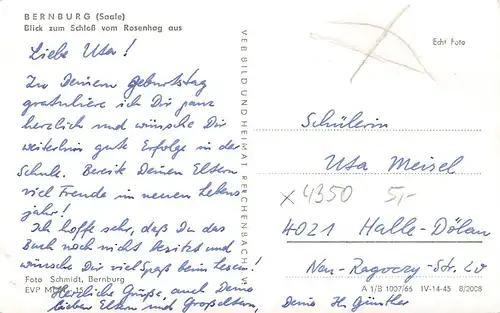 BERNBURG (Saale)
Blick zum Schloß vom Rosenhag aus
Liebe Uta!
Zu Deinem Geburtstag
gratuliere ich Dir ganz
herzlich und wünsche Dir
weiterhin gute Erfolge in der
Schule. Bereite Deinen Eltern
viel Freude im neuen Lebens-
jahr!
Ich hoffe sehr, daß Du das
Buch noch nicht besitzt und
wünsche Dir viel Spaß beim Lesen!
Foto Schmidt, Bernburg
EVP M
Herzliche Grüße, auch Deinen
lieben Eltern und Großeltern,
VEB BILD UND HEIMAT REICHENBACH i. V.
Echt Foto
Schülerin
Uta Meisel
x 4350 5,-
4021 Halle-Dölau
Neu-Ragoczy-Str. 20
A 1/B 1007/66 IV-14-45 8/2008
H. Günther